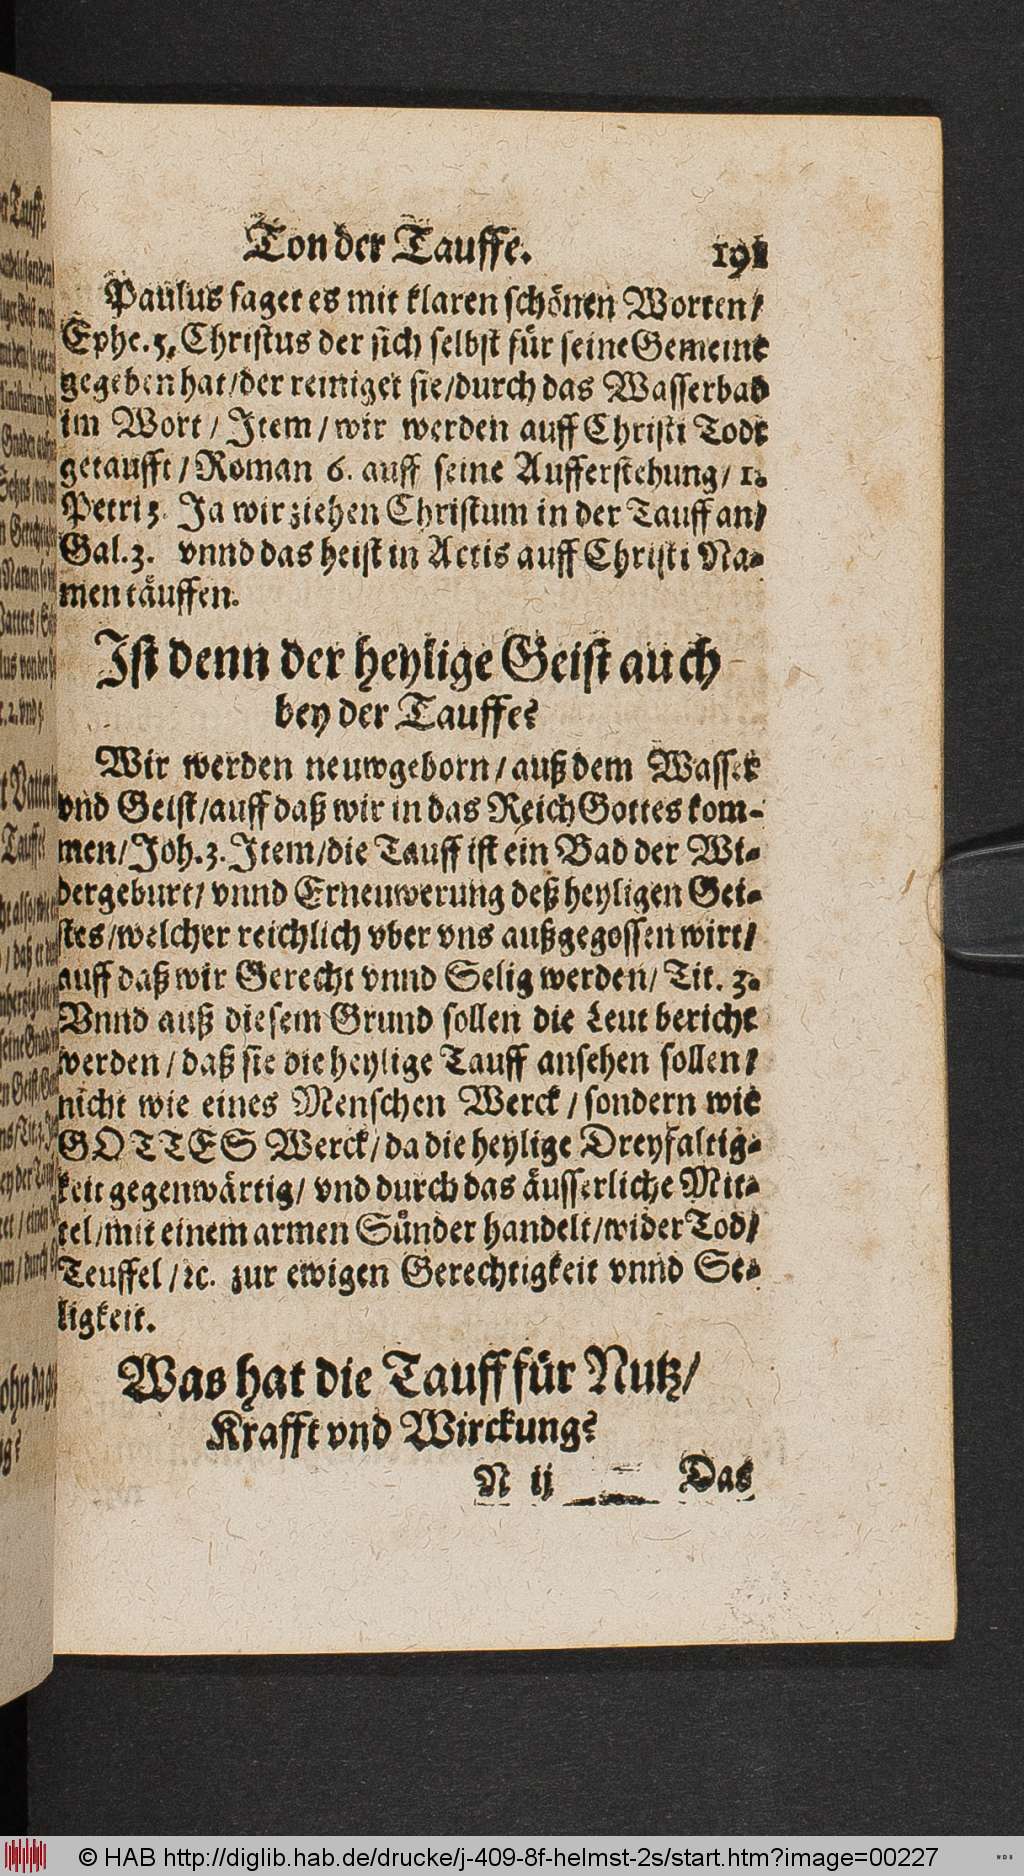 Von der Tauffe.
Paulus saget es mit klaren schönen Worten/
Ephe. 5. Christus der sich selbst für seine Gemeine
gegeben hat/der reiniget sie/durch das Wasserbad
im Wort/ Item/wir werden auff Christi Todt
getaufft/ Roman 6. auff seine Aufferstehung/ 1.
Petri 3. Ja wir ziehen Christum in der Tauff an/
Gal. 3. vnnd das heist in Actis auff Christi Na-
men täuffen.
Ist denn der heylige Geist auch
bey der Tauffe?
Wir werden neuwgeborn/auß dem Wasser
vnd Geist/auff daß wir in das Reich Gottes kom-
men/Joh. 3. Item/die Tauff ist ein Bad der Wi-
dergeburt/ vnnd Erneuwerung deß heyligen Gei-
stes/welcher reichlich vber vns außgegossen wirt/
auff daß wir Gerecht vnnd Selig werden/ Tit. 3.
Vnnd auß diesem Grund sollen die Leut bericht
werden/ daß sie die heylige Tauff ansehen sollen/
nicht wie eines Menschen Werck/ sondern wie
GOTTES Werck/da die heylige Dreyfaltig-
keit gegenwärtig/ vnd durch das äusserliche Mit-
tel/mit einem armen Sünder handelt/wider Tod/
Teuffel/ꝛc. zur ewigen Gerechtigkeit vnnd Se-
ligkeit.
Was hat die Tauff für Nutz/
Krafft vnd Wirckung?
N ij Das
© HAB http://diglib.hab.de/drucke/j-409-8f-helmst-2s/start.htm?image=00227